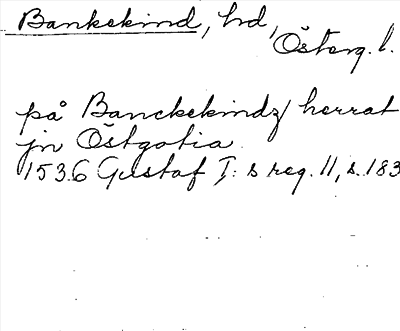 Bankekind, hd,
Österg. l.
på Banckekindz herrat
jn Östgotia
1536 Gustaf I:s reg. 11, s. 183